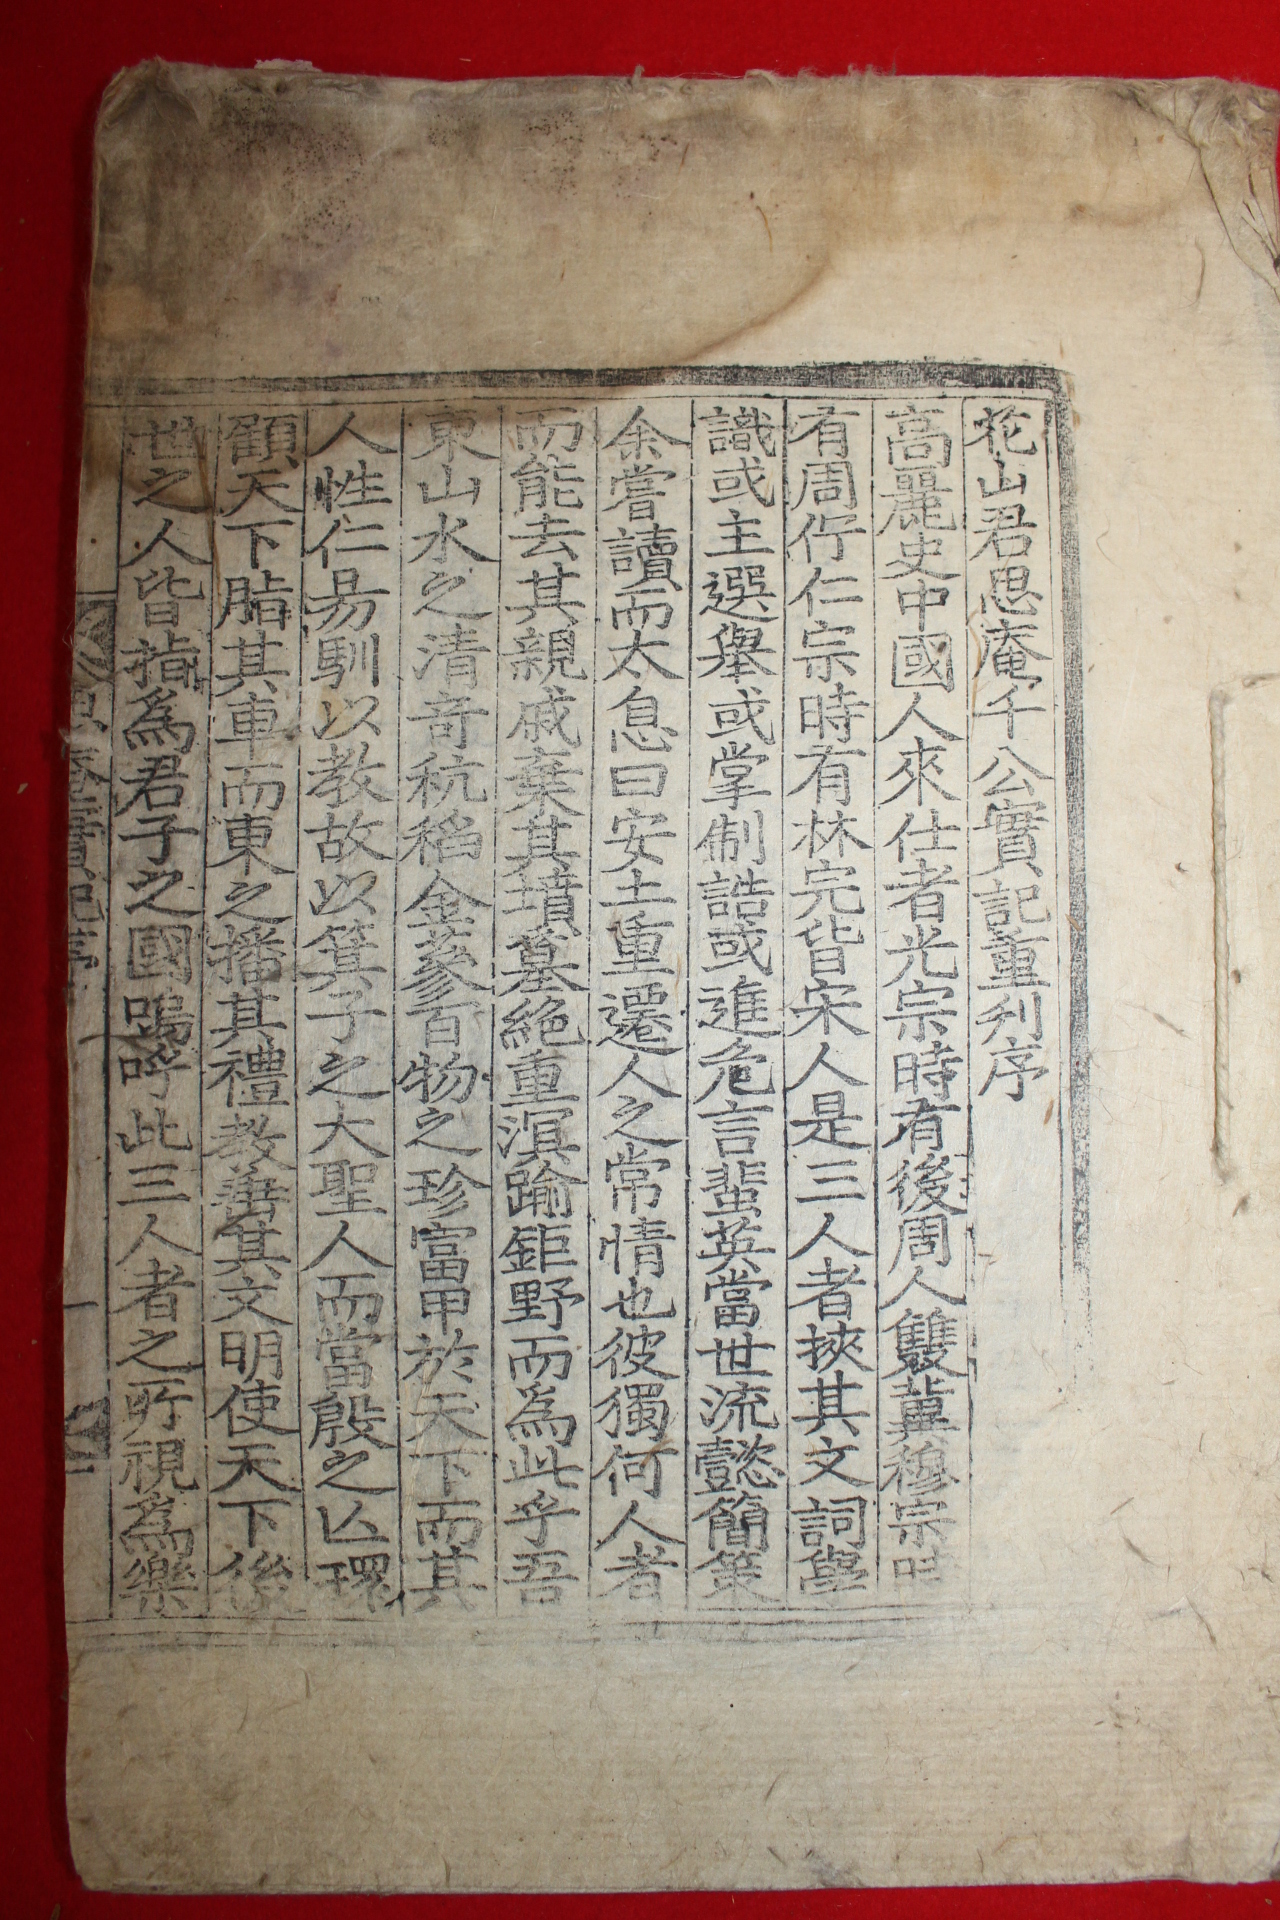 花山君思庵千公實記重刊序
高麗史中國人來仕者光宗時有後周人雙冀穆宗時
有周佇仁宗時有林完皆宋人是三人者挾其文詞學
識或主選擧或掌制誥或進危言蜚英當世流懿簡策
余嘗讀而太息曰安土重遷人之常情也彼獨何人者
而能去其親戚棄其墳墓絶重溟踰鉅野而爲此乎吾
東山水之清奇秔稻金蔘百物之珍富甲於天下而其
人性仁昜馴以教故以箕子之大聖人而當殷之亾環
顧天下脂其車而東之播其禮教垂其文明使天下後
世之人皆指爲君子之國嗚呼此三人者之所視爲樂
思庵實記序
一